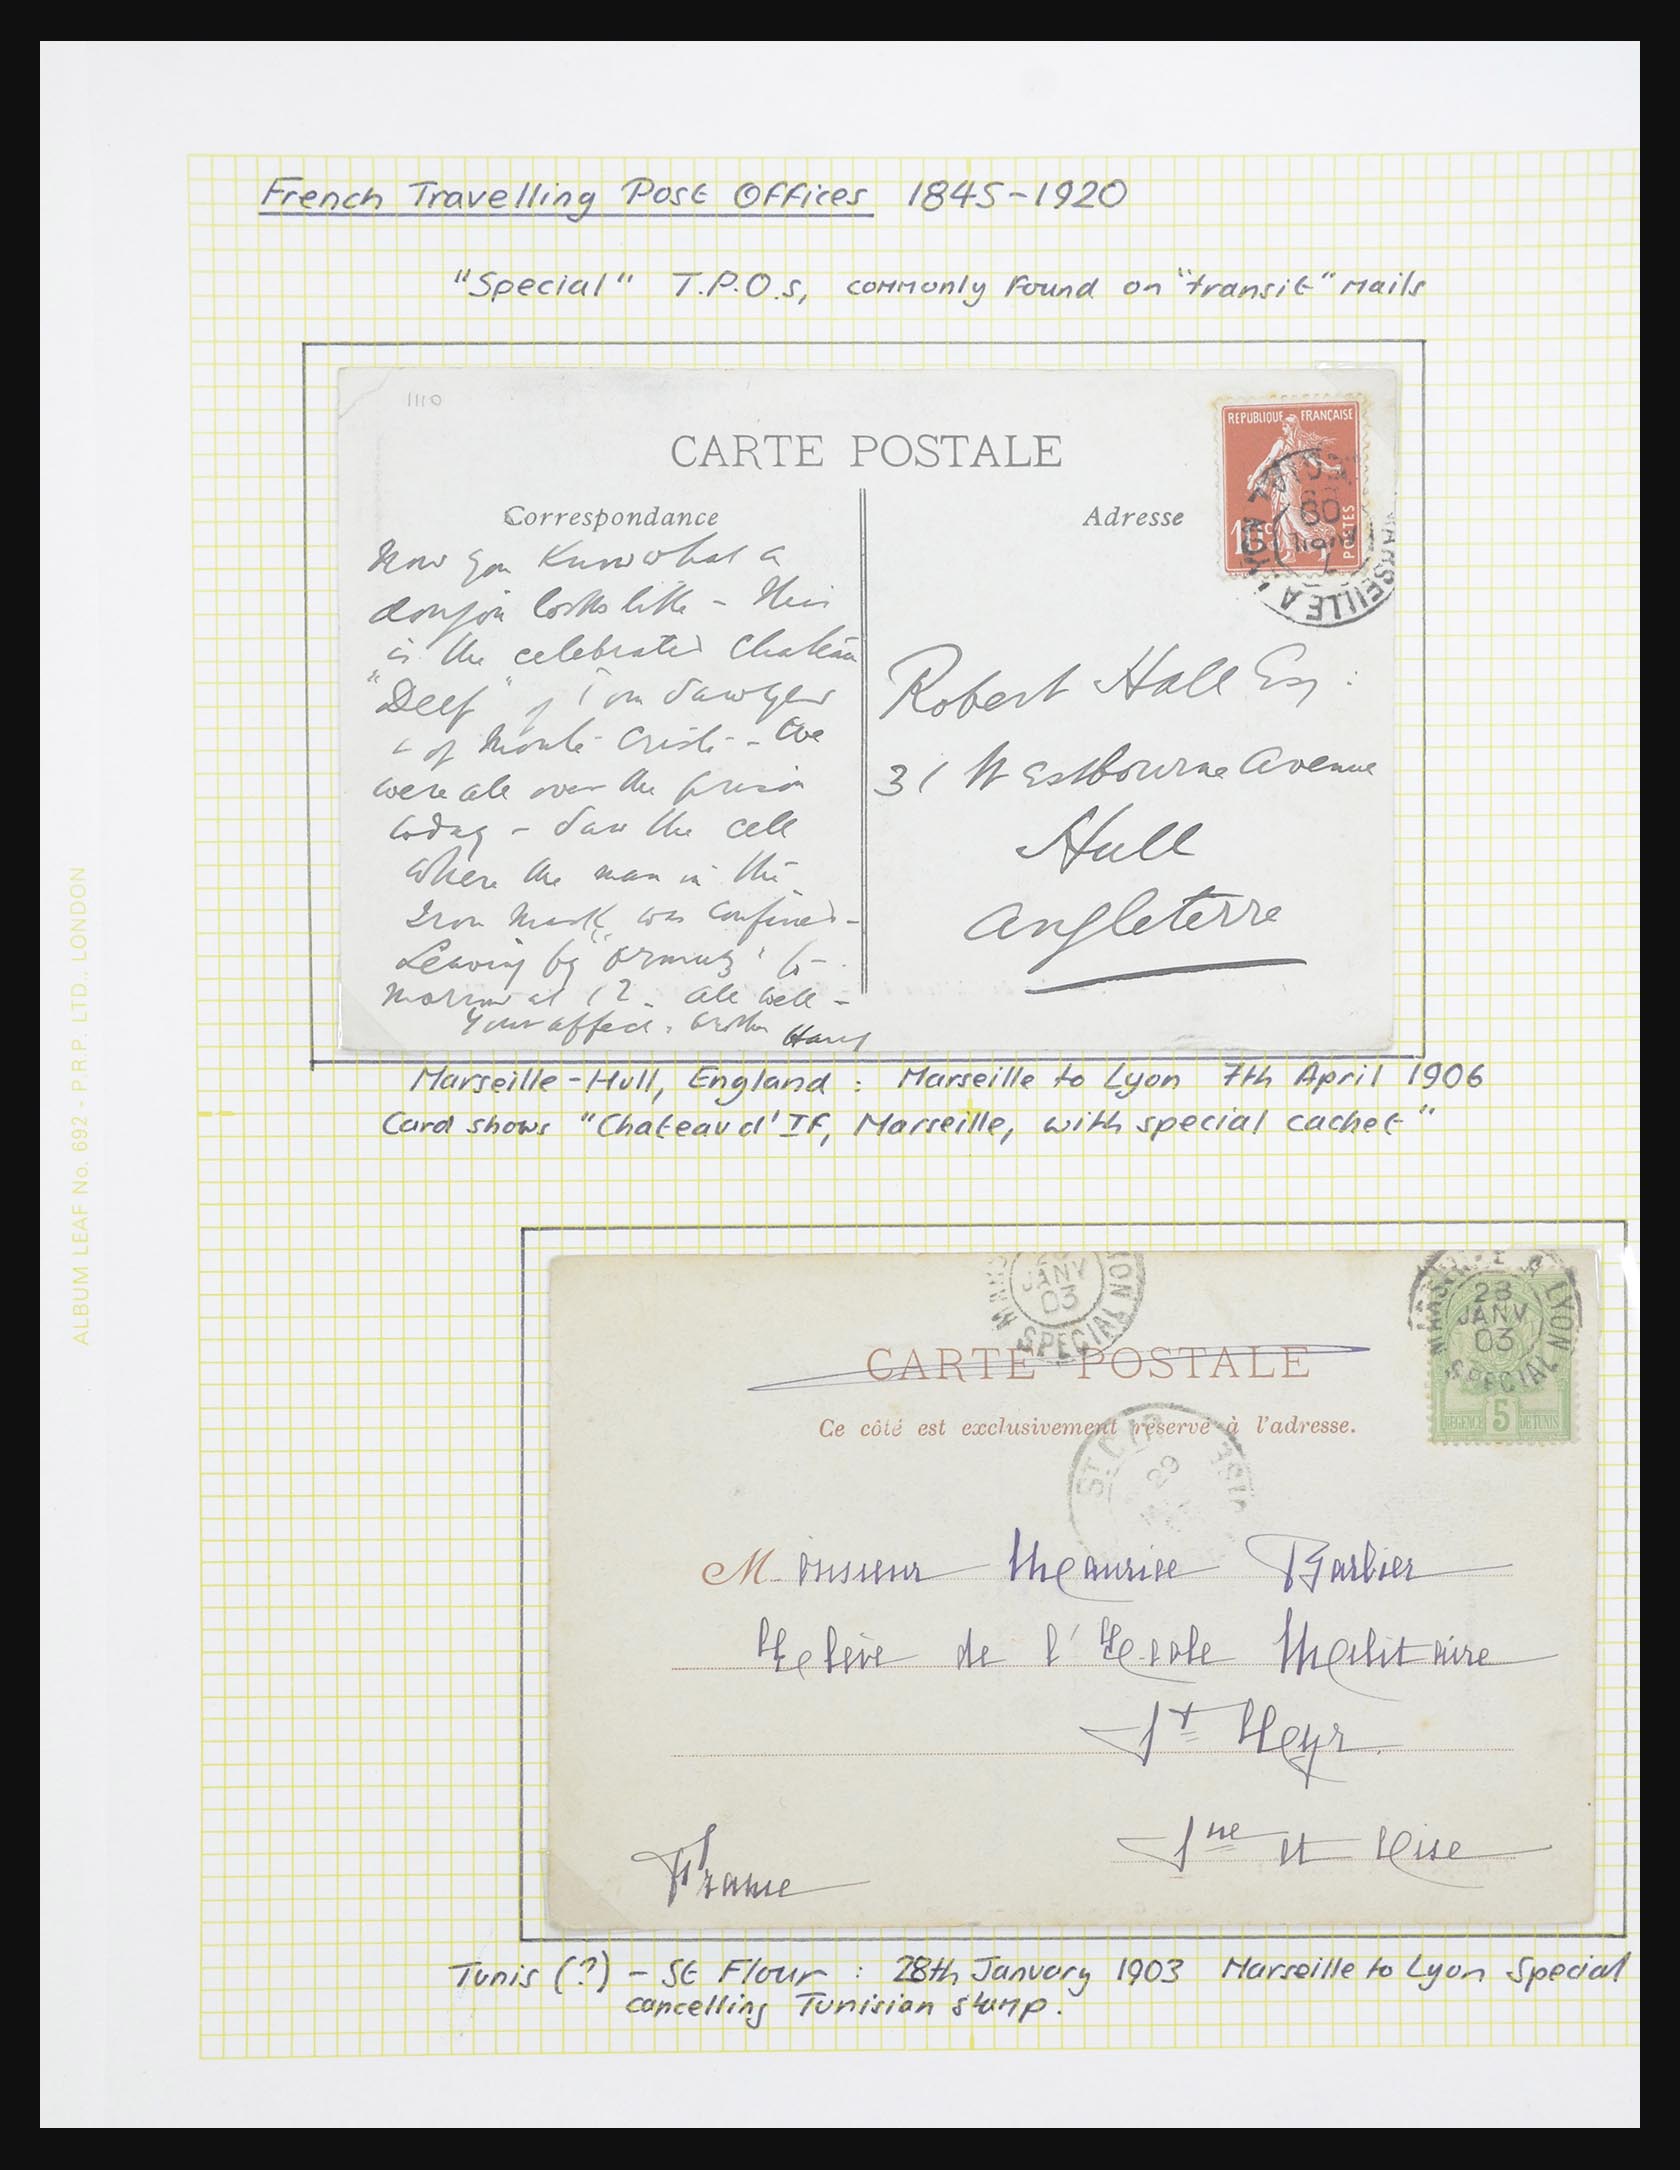 French Travelling Post Offices 1845-1920
"Special" T.P.O.s, commonly found on "transit" mails
1110
CARTE POSTALE
Correspondance
Adresse
REPUBLIQUE FRANÇAISE
10c
POSTES
MARSEILLE A LYON
Now you know what a
donjon looks like - This
is the celebrated Chateau
"Deef" of Tom Sawyer
& of Monte Cristo - We
were all over the prison
today - Saw the cell
where the man in the
Iron Mask was confined -
Leaving by "Ormuz" to-
morrow at 12. All well -
Your affect. brother Harry
Robert Hall Esq:
31 Westbourne Avenue
Hull
Angleterre
Marseille-Hull, England : Marseille to Lyon 7th April 1906
Card shows "Chateau d'If, Marseille, with special cachet"
ALBUM LEAF No. 692 - P.R.P. LTD., LONDON
JANV
03
SPECIAL
MARSEILLE A LYON
28
JANV
03
SPECIAL
REGENCE 5 DE TUNIS
CARTE POSTALE
Ce côté est exclusivement réservé à l'adresse.
ST
29
Monsieur Maurice Barbier
Elève de l'Ecole Militaire
St Cyr
Sne et Oise
France
Tunis (?) - St Flour : 28th January 1903 Marseille to Lyon Special
cancelling Tunisian stamp.